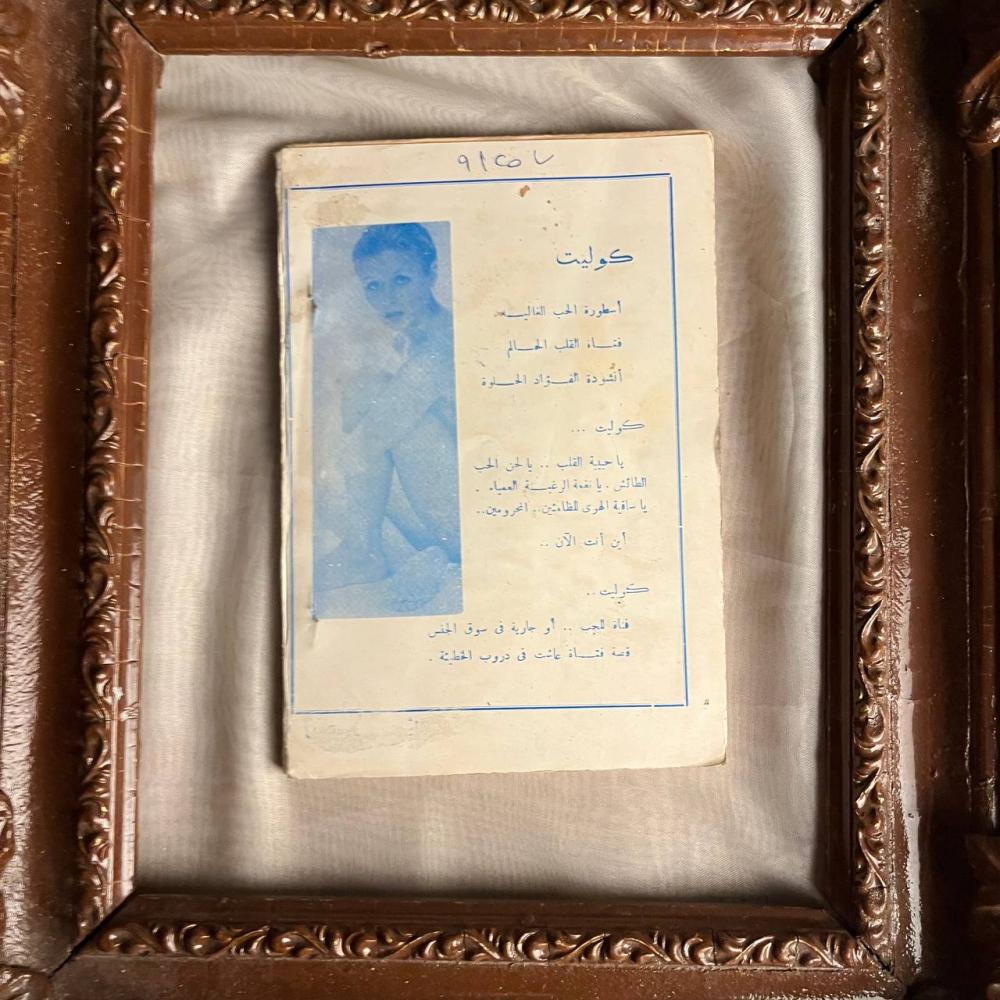 كوليت
أسطورة الحب الغاليـــه
فتـــاة القلب الحـــالم
أنشودة الفـــؤاد الحـــلوة
كوليت ...
يا حبيبة القلب .. يا لحن الحب
الطائش . يا نغمة الرغبـــة العمياء .
يا ساقية الهوى للظامئين.. المحرومين..
أين أنت الآن ..
كوليت ..
فتاة للحب .. أو جارية فى سوق الجنس
قصة فتـــاة عاشت فى دروب الخطيئة .